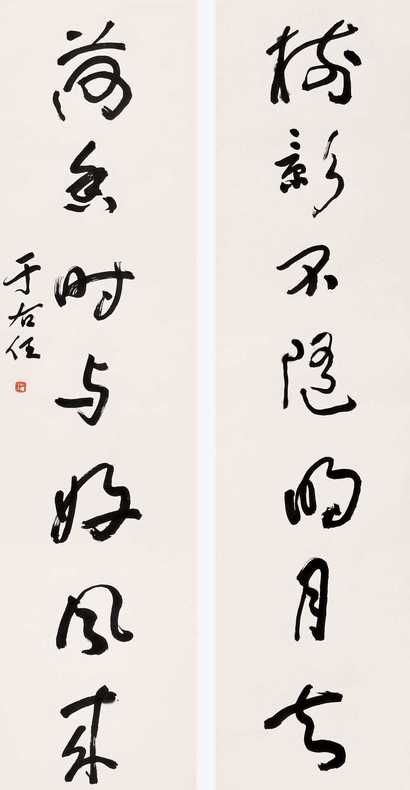 樹影不随明月去
荷香时与好风来
于右任